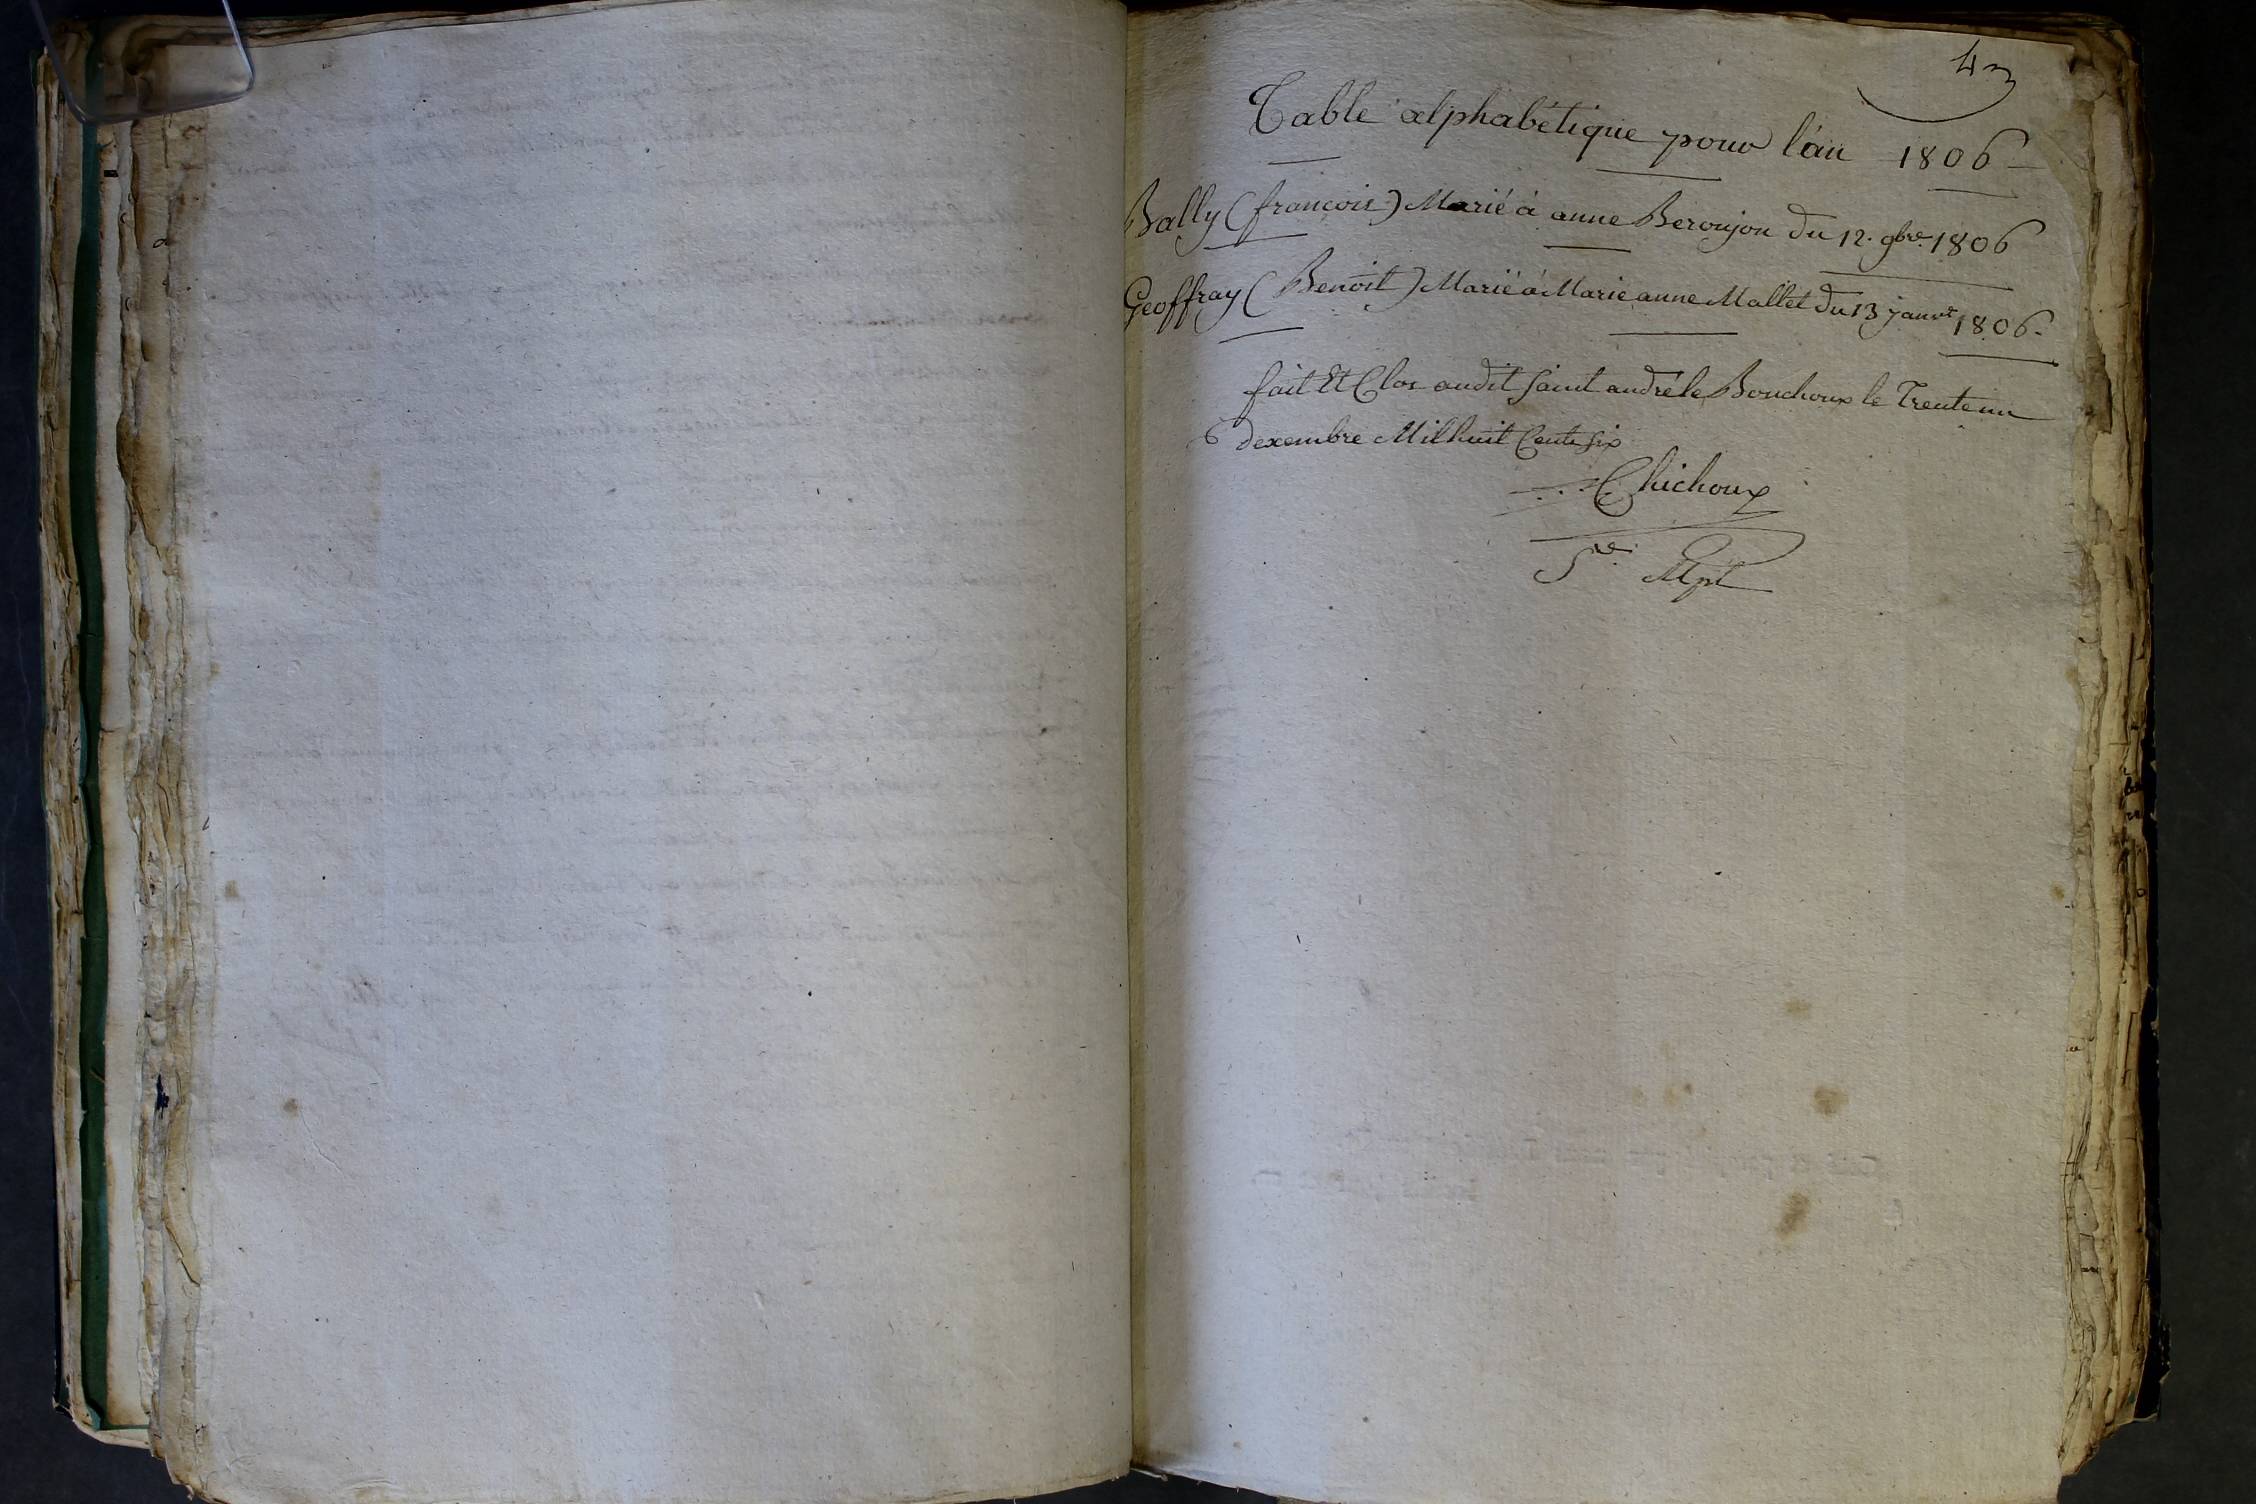 43
Table alphabétique pour l'an 1806
Bally (françois) Marié à anne Beroujon du 12. 9bre. 1806
Geoffray (Benoit) Marié à Marie anne Mallet du 13 janvr 1806.
fait Et Clos audit saint andré le Bouchoux le Trente un
dexembre Mil huit Cents six
Chichoux